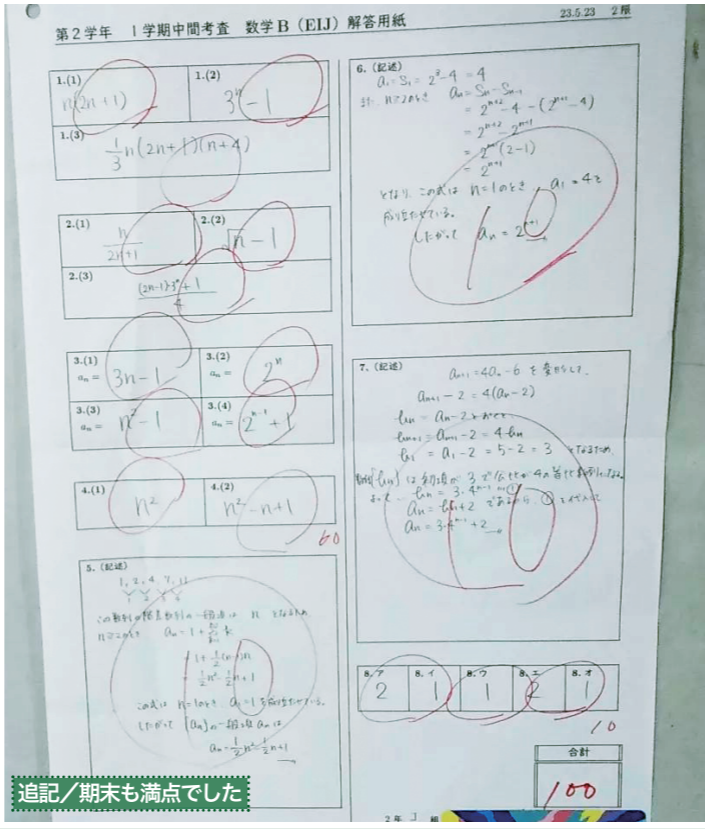 第2学年 1学期中間考査 数学B(EIJ)解答用紙
23.5.23 2限
1.(1)
n(2n+1)
1.(2)
3^n-1
1.(3)
1/3 n(2n+1)(n+4)
2.(1)
n/(2n+1)
2.(2)
√n-1
2.(3)
((2n-1)・3^n+1)/4
3.(1)
a_n= 3n-1
3.(2)
a_n= 2^n
3.(3)
a_n= n^2-1
3.(4)
a_n= 2^{n-1}+1
4.(1)
n^2
4.(2)
n^2-n+1
60
5.(記述)
1, 2, 4, 7, 11
この数列の階差数列の一般項は n となるため
n≧2のとき a_n=1+Σk
1+1/2(n-1)n
=1/2n^2-1/2n+1
この式は n=1のとき、a_1=1を成り立たせている。
したがって {a_n}の一般項a_nは
a_n=1/2n^2-1/2n+1
10
6.(記述)
a_1=S_1=2^3-4=4
また、n≧2のとき a_n=S_n-S_{n-1}
=2^{n+2}-4-(2^{n+1}-4)
=2^{n+2}-2^{n+1}
=2^{n+1}(2-1)
=2^{n+1}
となり、この式は n=1のとき a_1=4を
成り立たせている。
したがって a_n=2^{n+1}
10
7.(記述)
a_{n+1}=4a_n-6 を変形して、
a_{n+1}-2=4(a_n-2)
b_n=a_n-2とおくと
b_{n+1}=a_{n+1}-2=4b_n
b_1=a_1-2=5-2=3 となるため、
数列{b_n}は初項が3で公比が4の等比数列になる。
よって、b_n=3・4^{n-1}…①
a_n=b_n+2 であるから、①を代入して
a_n=3・4^{n-1}+2
10
8.ア 8.イ 8.ウ 8.エ 8.オ
2 1 1 2 1
10
合計
100
2年 J 組
追記/期末も満点でした